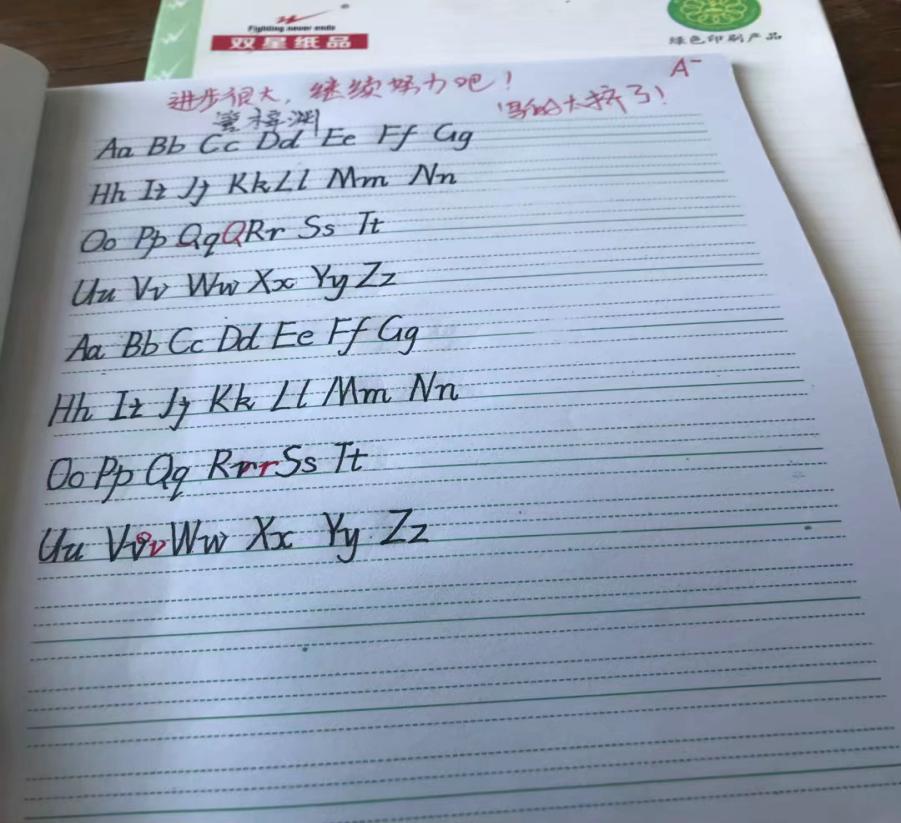 Fighting never ends
双星纸品
绿色印刷产品
A-
进步很大，继续努力吧！
写的太挤了！
Aa Bb Cc Dd Ee Ff Gg
Hh Ii Jj Kk Ll Mm Nn
Oo Pp Qq Q Rr Ss Tt
Uu Vv Ww Xx Yy Zz
Aa Bb Cc Dd Ee Ff Gg
Hh Ii Jj Kk Ll Mm Nn
Oo Pp Qq Rr r Ss Tt
Uu Vv v Ww Xx Yy Zz